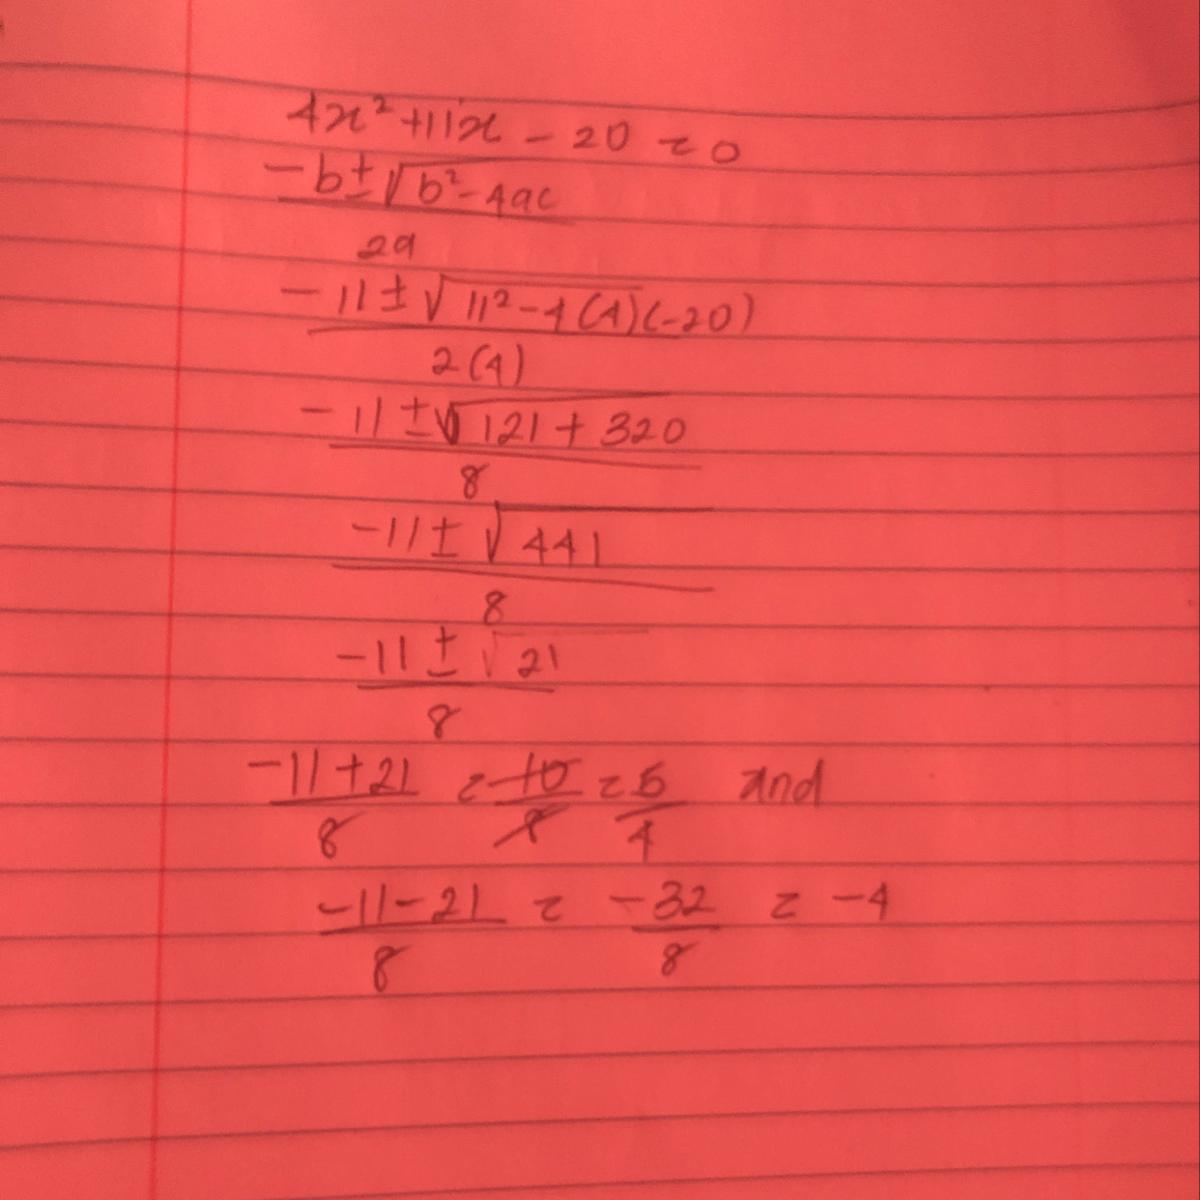 4x² + 11x - 20 = 0
-b ± √b² - 4ac
2a
-11 ± √11² - 4(4)(-20)
2(4)
-11 ± √121 + 320
8
-11 ± √441
8
-11 ± √21
8
-11 + 21 = 10 = 5 and
8 8 4
-11 - 21 = -32 = -4
8 8